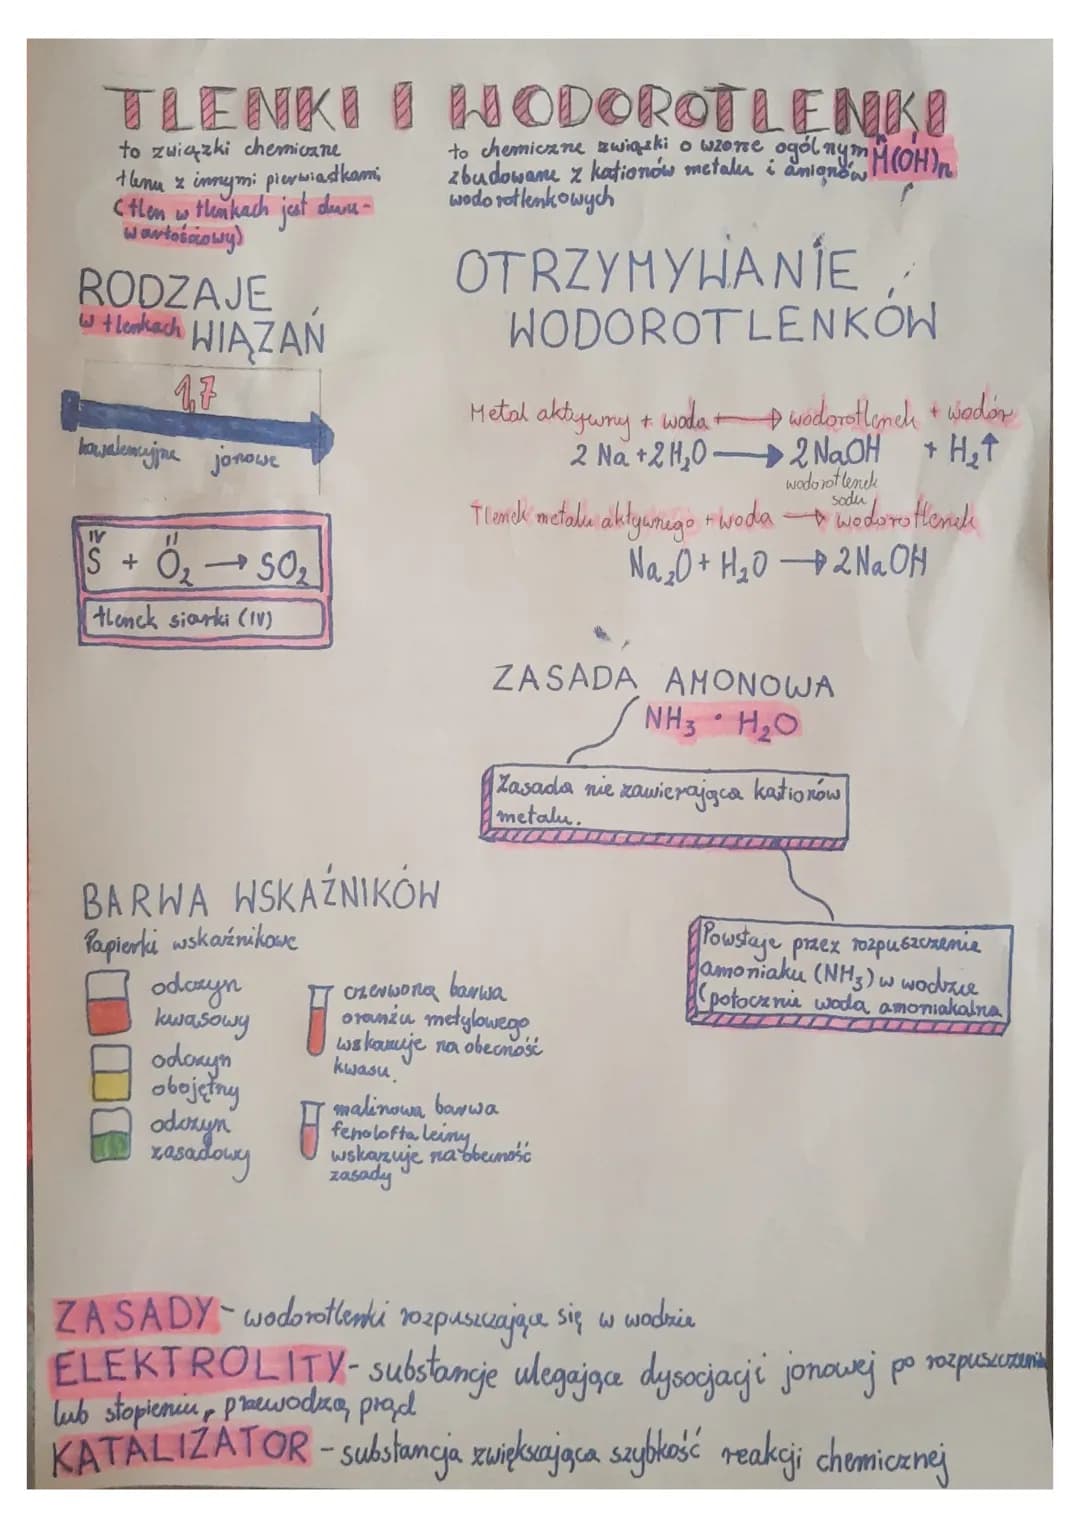 TLENKI I WODOROTLENKI
to związki chemiczne
tlenu z innymi pierwiastkami
(tlen w tlenkach jest dwu-
wartościowy)
to chemiczne związki o wzorze ogólnym M(OH)n
zbudowane z kationów metalu i anionów
wodorotlenkowych
RODZAJE
w tlenkach WIĄZAŃ
1,7
kowalencyjne jonowe
IV II
S + O₂ → SO₂
tlenek siarki (IV)
OTRZYMYWANIE
WODOROTLENKÓW
Metal aktywny + woda → wodorotlenek + wodór
2 Na + 2H₂O → 2 NaOH + H₂↑
wodorotlenek
sodu
Tlenek metalu aktywnego + woda → wodorotlenek
Na₂O + H₂O → 2NaOH
ZASADA AMONOWA
NH₃ · H₂O
Zasada nie zawierająca kationów
metalu.
Powstaje przez rozpuszczenie
amoniaku (NH₃) w wodzie
(potocznie woda amoniakalna
BARWA WSKAŹNIKÓW
Papierki wskaźnikowe
odczyn
kwasowy
odczyn
obojętny
odczyn
zasadowy
czerwona barwa
oranżu metylowego
wskazuje na obecność
kwasu.
malinowa barwa
fenoloftaleiny
wskazuje na obecność
zasady
ZASADY - wodorotlenki rozpuszczające się w wodzie
ELEKTROLITY - substancje ulegające dysocjacji jonowej po rozpuszczeniu
lub stopieniu, przewodzą prąd
KATALIZATOR - substancja zwiększająca szybkość reakcji chemicznej